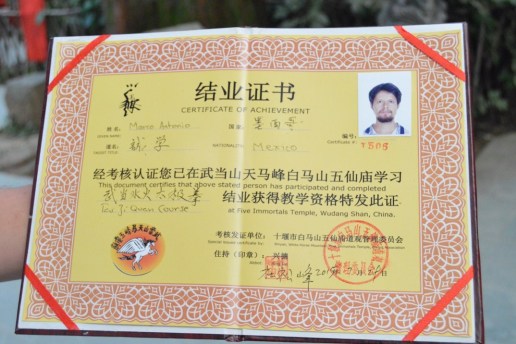 结业证书
CERTIFICATE OF ACHIEVEMENT
姓名: Marco Antonio 国家: 墨西哥
GIVEN NAME: NATIONALITY: Mexico
道名:
编号:
Certificate # 1506
经考核认证您已在武当山天马峰白马山五仙庙学习
This document certifies that above stated person has participated and completed
武当水火太极拳 结业获得教学资格特发此证
Tai Ji Quan Course at Five Immortals Temple, Wudang Shan, China.
考核发证单位: 十堰市白马山五仙庙道观管理委员会
住持(印章):